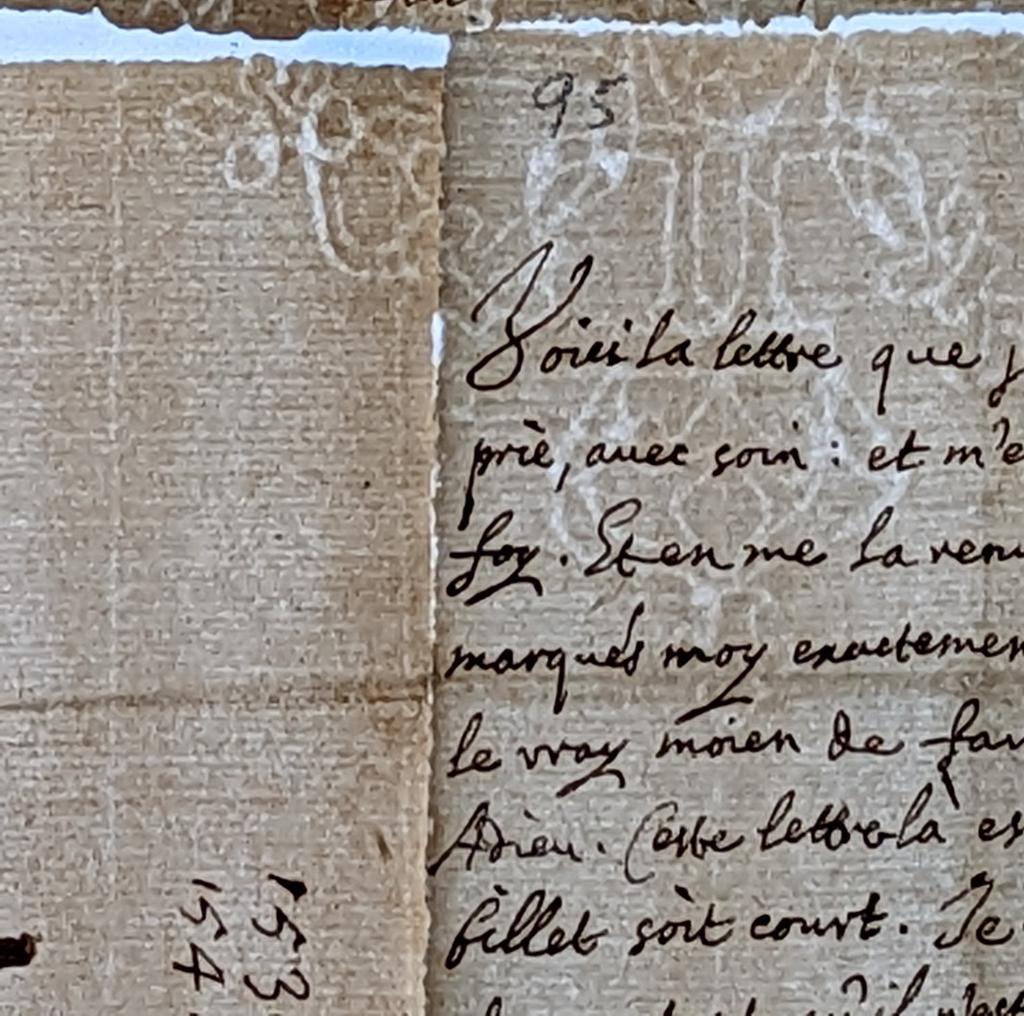 95
Voici la lettre que j
priè, avec soin : et m'e
foy. Et en me la renv
marqués moy exactemen
le vray moien de fai
Adieu. Ceste lettre là es
billet soit court. Je
qu'il n'est
153
154